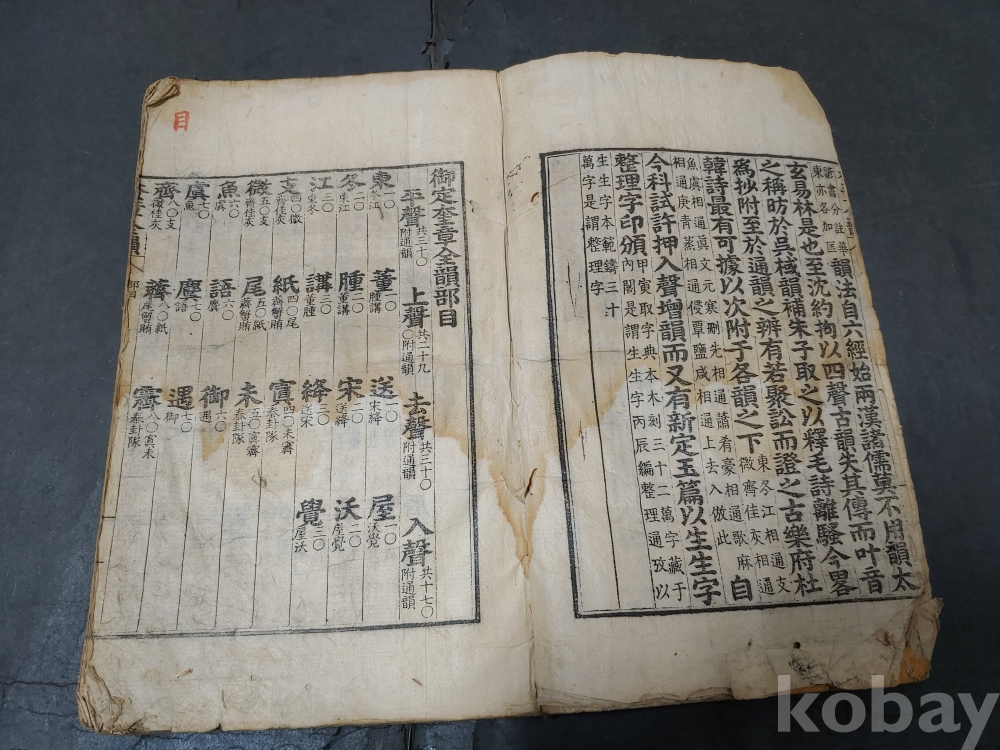 諺書分註華
東亦各加匡
韻法自六經始兩漢諸儒莫不用韻太
玄易林是也至沈約拘以四聲古韻失其傳而叶音
之稱昉於吳棫韻補朱子取之以釋毛詩離騷今畧
爲抄附至於通韻之辨有若聚訟而證之古樂府杜
韓詩最有可據以次附于各韻之下
東冬江相通支
微齊佳灰相通
魚虞相通眞文元寒刪先相通蕭肴豪相通歌麻
相通庚靑蒸相通侵覃鹽咸相通上去入倣此
自
今科試許押入聲增韻而又有新定玉篇以生生字
整理字印頒
甲寅取字典本木刻三十二萬字藏于
內閣是謂生生字丙辰編整理通攷以
生生字本範鑄三十
萬字是謂整理字
目
御定奎章全韻部目
平聲 共三十〇附通韻 上聲 共二十九〇附通韻 去聲 共三十〇附通韻 入聲 共十七〇附通韻
東 一〇冬江 董 一〇腫講 送 一〇宋絳 屋 一〇沃覺
冬 二〇東江 腫 二〇董講 宋 二〇送絳 沃 二〇屋覺
江 三〇東冬 講 三〇董腫 絳 三〇送宋 覺 三〇屋沃
支 四〇微齊佳灰 紙 四〇尾薺蟹賄 寘 四〇未霽泰卦隊
微 五〇支齊佳灰 尾 五〇紙薺蟹賄 未 五〇寘霽泰卦隊
魚 六〇虞 語 六〇麌 御 六〇遇
虞 七〇魚 麌 七〇語 遇 七〇御
齊 八〇支微佳灰 薺 八〇紙尾蟹賄 霽 八〇寘未泰卦隊
kobay